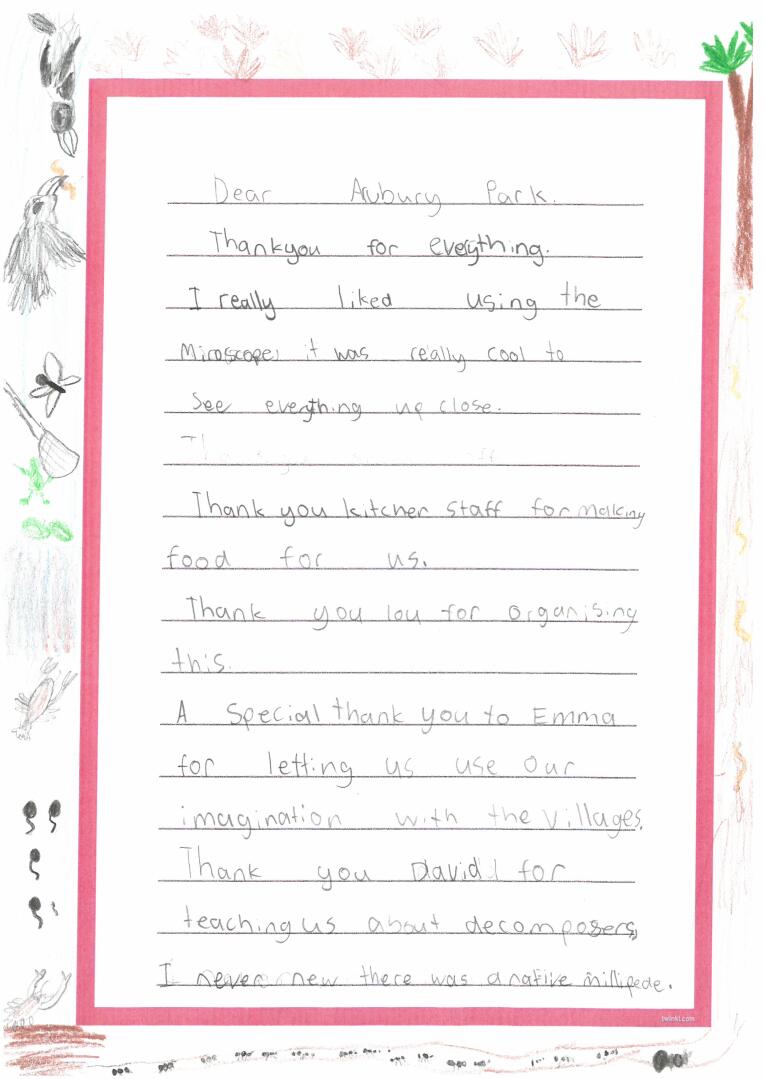 Dear Arbury Park.
Thankyou for everything.
I really liked using the
Miroscope, it was really cool to
See everything up close.
Thank you kitchen staff for making
food for us.
Thank you lou for organising
this.
A Special thank you to Emma
for letting us use our
imagination with the villages.
Thank you David for
teaching us about decomposers,
I never new there was a native millipede.
twinkl.com